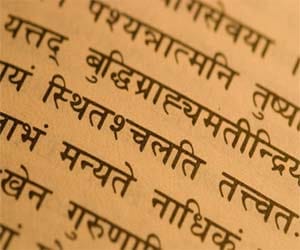 गसेवया ।
पश्यन्नात्मनि
यत्तद् बुद्धिग्राह्यमतीन्द्रि
स्थितश्चलति तत्त्वत
मन्यते नाधिकं